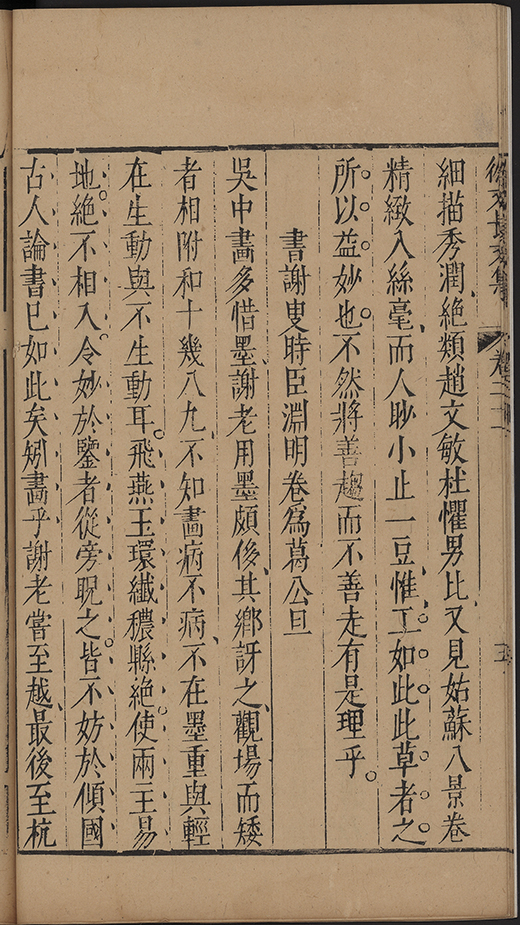 徐文長文集 卷二十一 五
細描秀潤、絶類趙文敏杜懼男比、又見姑蘇八景卷
精緻入絲毫、而人眇小止一豆、惟工如此、此草者之
所以益妙也、不然將善趨而不善走、有是理乎。
書謝叟時臣淵明卷為葛公旦
吳中畫多惜墨、謝老用墨頗侈、其鄉訝之、觀場而矮
者相附和、十幾八九、不知畫病不病、不在墨重與輕
在生動與不生動耳。飛燕玉環纖穠縣絶。使兩主易
地。絶不相入。令妙於鑒者從旁睨之。皆不妨於傾國
古人論書已如此矣、矧畫乎、謝老嘗至越、最後至杭